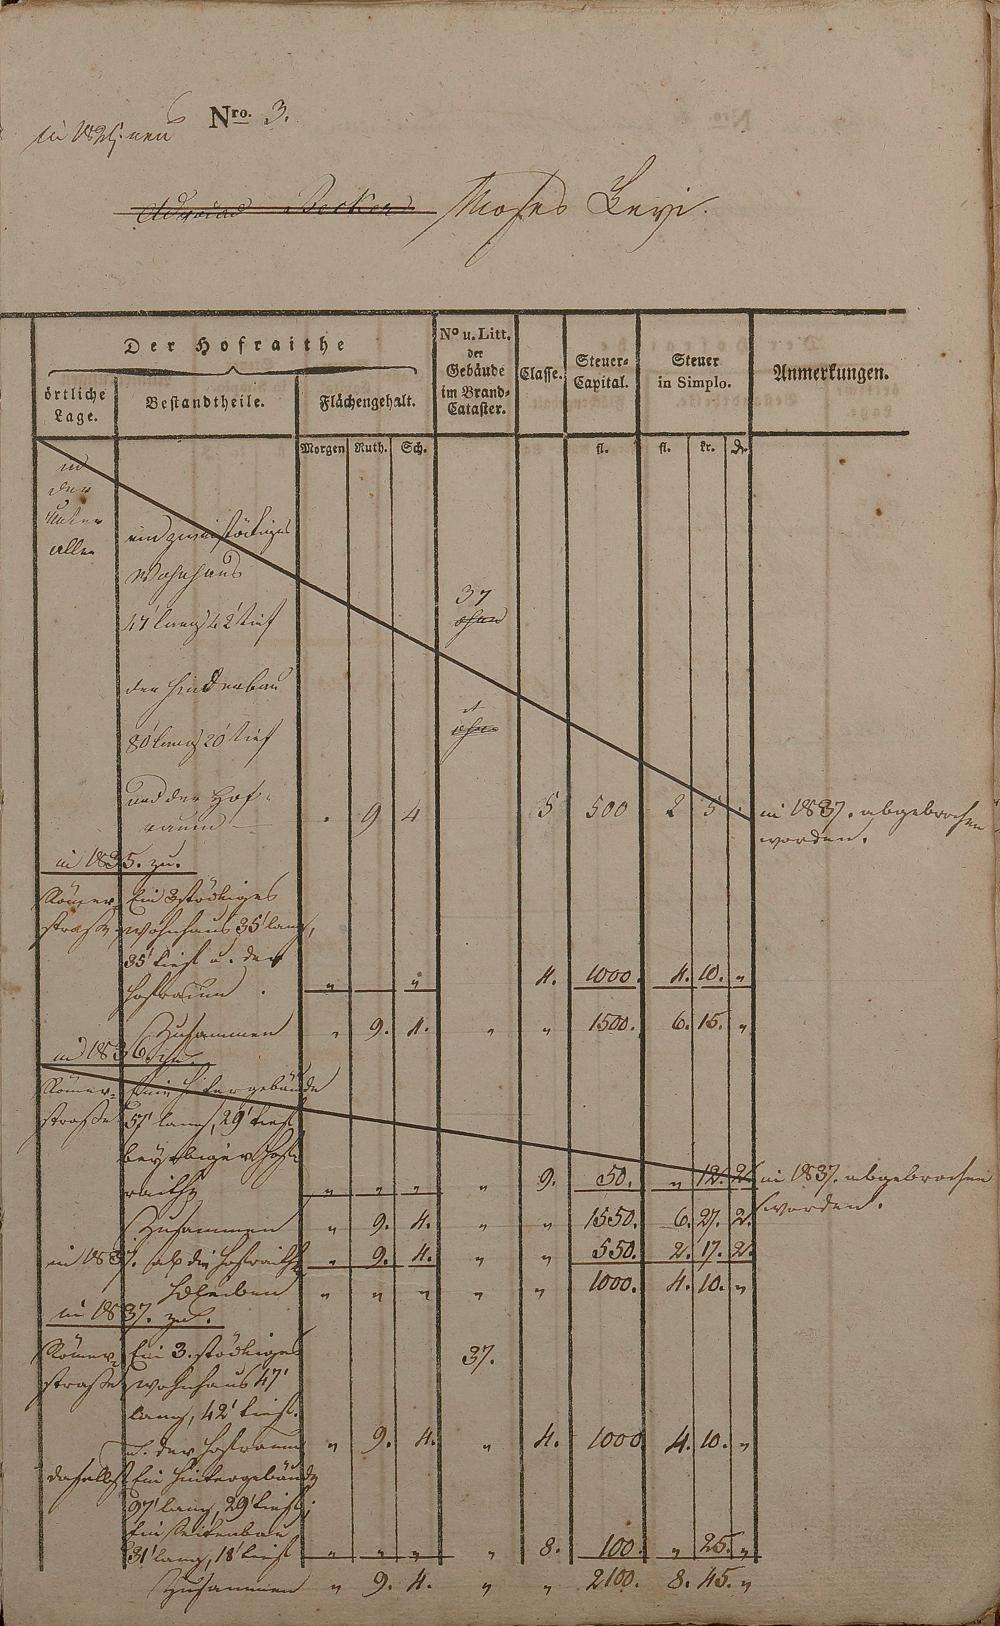 Nro. 3.
in 1824. neu
Becker Moses Levi.
Der Hofraithe
örtliche Lage.
Bestandtheile.
Flächengehalt.
No u. Litt. der Gebäude im Brand-Cataster.
Classe.
Steuer-Capital.
Steuer in Simplo.
Anmerkungen.
Morgen Ruth. Sch. fl. fl. kr. d.
in
der
allee
ein zweistöckiges
Wohnhaus
47' lang 42' tief 37
ohne
der Hinderbau
80' lang 20' tief
ohne
und der Hof-
raum — . 9 4 5 500 2 5 . in 1837. abgebrochen
worden.
in 1835. zu.
Römer- Ein 3stöckiges
straße wohnhaus 35' lang,
35' tief u. der
Hofraum . " " 4. 1000. 4. 10. "
Zusammen " 9. 4. " " 1500. 6. 15. "
in 1836. zu.
Römer- Ein Hintergebäude
straße 57' lang, 29' tief
Hof-
raithe " " " " 9. 50. " 12. 2. in 1837. abgebrochen
worden.
Zusammen " 9. 4. " " 1550. 6. 27. 2.
in 1837. ab die Hofraithe " 9. 4. " " 550. 2. 17. 2.
bleiben " " " " " 1000. 4. 10. "
in 1837. zu.
Römer- Ein 3. stöckiges 37.
straße wohnhaus 47'
lang, 42' tief.
u. der Hofraum " 9. 4. " 4. 1000 4. 10. "
daselbst Ein Hintergebäude
97' lang, 29' tief;
Ein Seitenbau
31' lang, 18' tief " " " " 8. 100. " 25. "
Zusammen " 9. 4. " " 2100. 8. 45. "